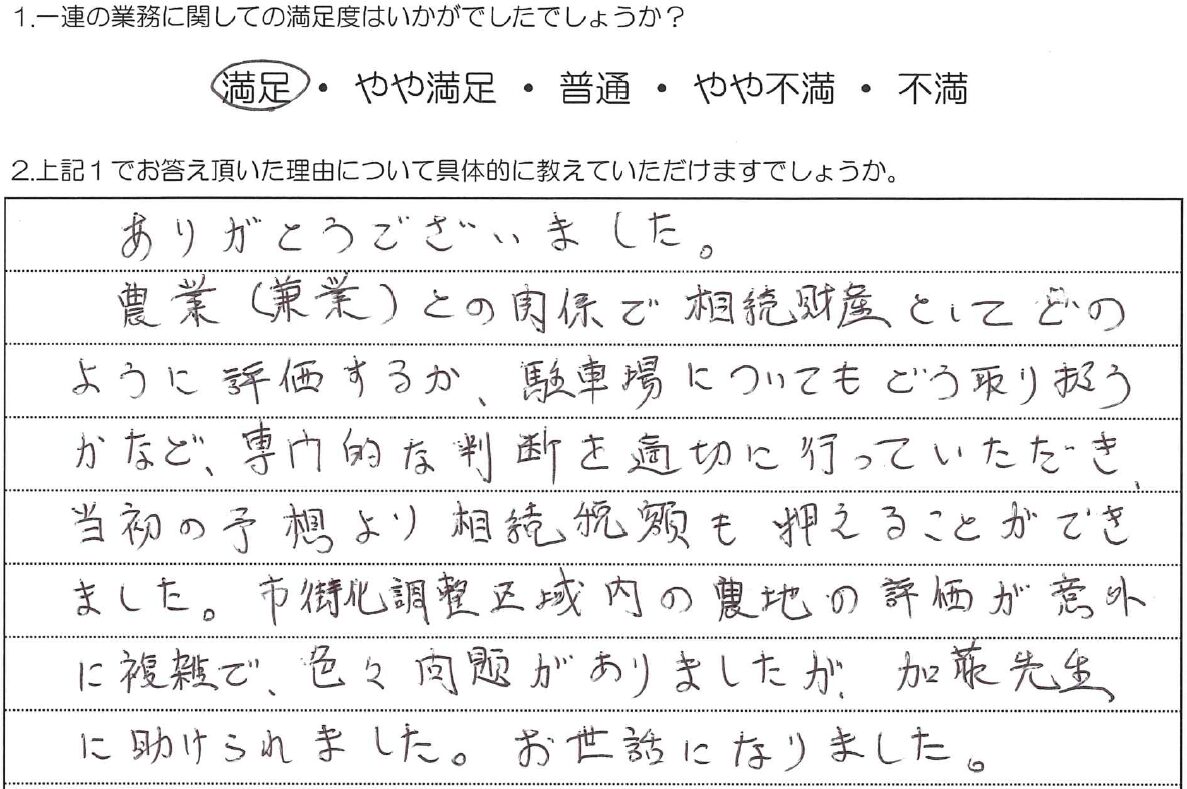 1.一連の業務に関しての満足度はいかがでしたでしょうか？
満足・やや満足・普通・やや不満・不満
2.上記1でお答え頂いた理由について具体的に教えていただけますでしょうか。
ありがとうございました。
農業(兼業)との関係で相続財産としてどの
ように評価するか、駐車場についてもどう取り扱う
かなど、専門的な判断を適切に行っていただき、
当初の予想より相続税額も押えることができ
ました。市街化調整区域内の農地の評価が意外
に複雑で、色々問題がありましたが、加藤先生
に助けられました。お世話になりました。